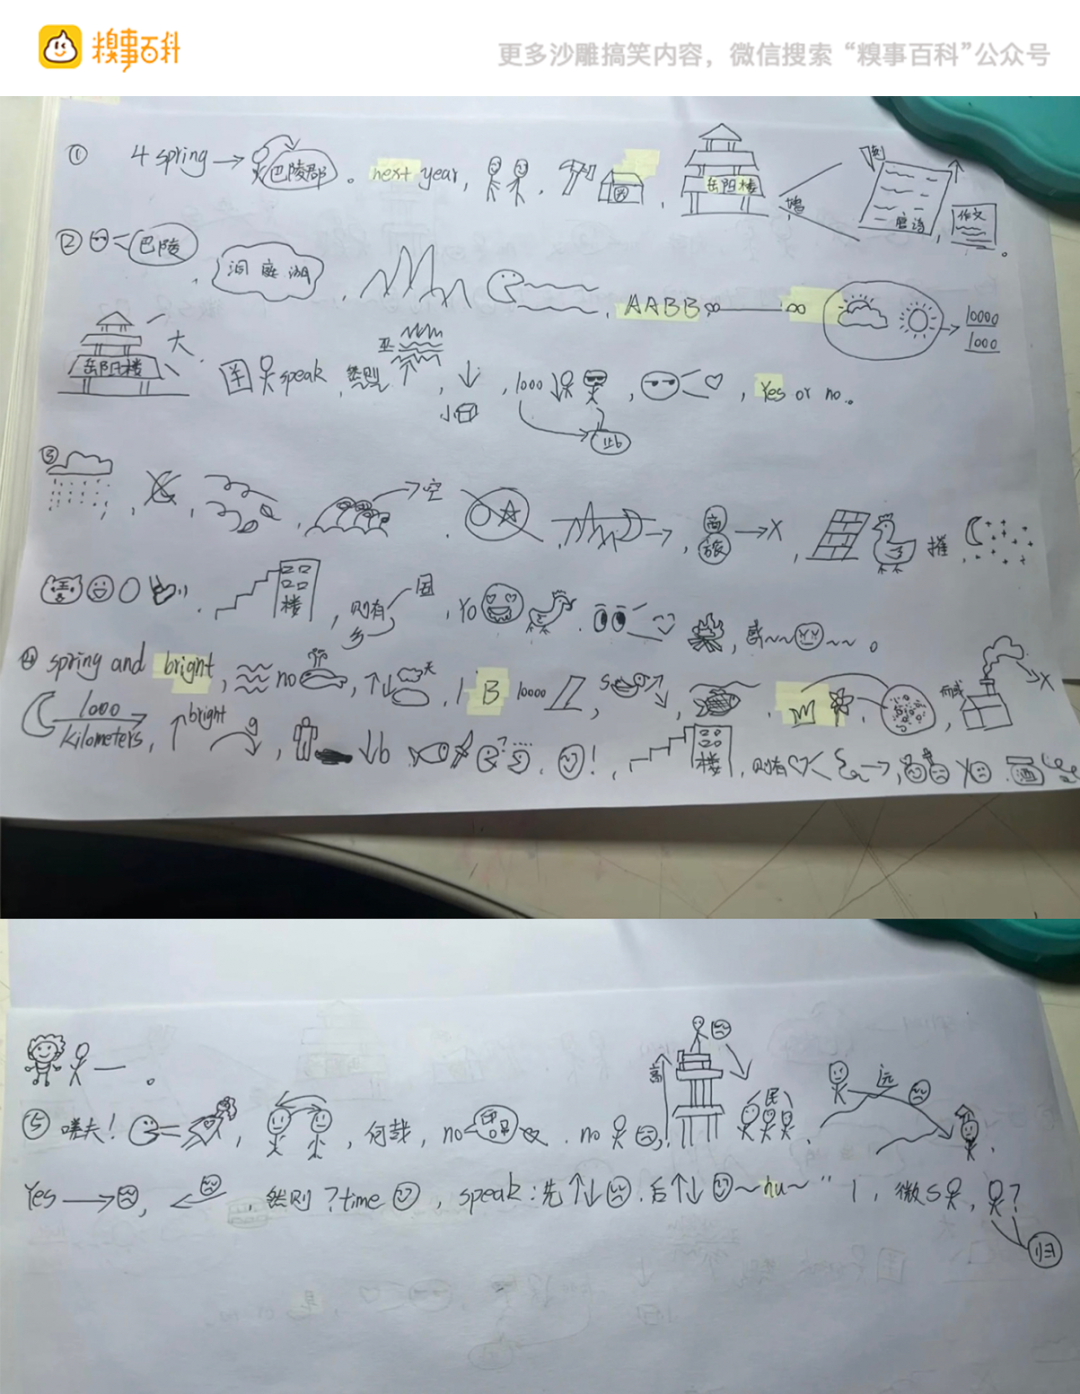 糗事百科
更多沙雕搞笑内容，微信搜索“糗事百科”公众号
① 4 spring → 巴陵郡 。 next year, 岳阳楼 墙 唐诗 作文 。
② 巴陵 , 洞庭湖 , , AABB ∞ ∞ 10000 1000
岳阳楼 大 , speak , 然则 , 小 , 1000 北 , , Yes or no 。
③ , , , 空 , , 商旅 → X , 摧 ,
, 楼 , 则有 乡 国 , yo , , 感~~ ~~ 。
④ spring and bright , no , ↑↓ 天 , 1 B 10000 , s , , , , X
1000 kilometers , ↑ bright g , ↓b , ? , ! , 楼 , 则有 , 酒
一 。
⑤ 嗟夫! , , 何哉 , no , no , 高 民 , 远 ,
Yes → , ← , 然则 ? time , speak : 先↑↓ . 后↑↓ ~nu~ ” 1 , 微s , ? 归